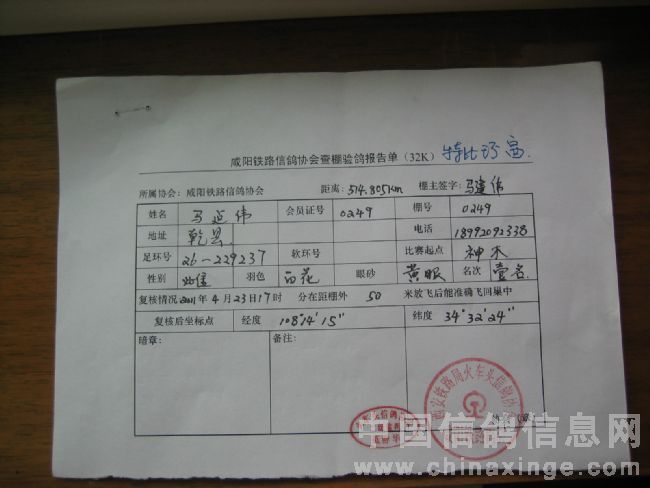 咸阳铁路信鸽协会查棚验鸽报告单（32K）
所属协会：咸阳铁路信鸽协会 距离：514.805km 棚主签字：马建伟
姓名 马延伟 会员证号 0249 棚号 0249
地址 乾县 电话 18992092338
足环号 26-229237 软环号 比赛起点 神木
性别 羽色 雨花 眼砂 黄眼 名次
复核情况2011年4月23日17时 分在距棚外 50 米放飞后能准确飞回巢中
复核后坐标点 经度 108°14′15″ 纬度 34°32′24″
暗章： 备注：
西安铁路局火车头信鸽协会
中国信鸽信息网
www.chinaxinge.com